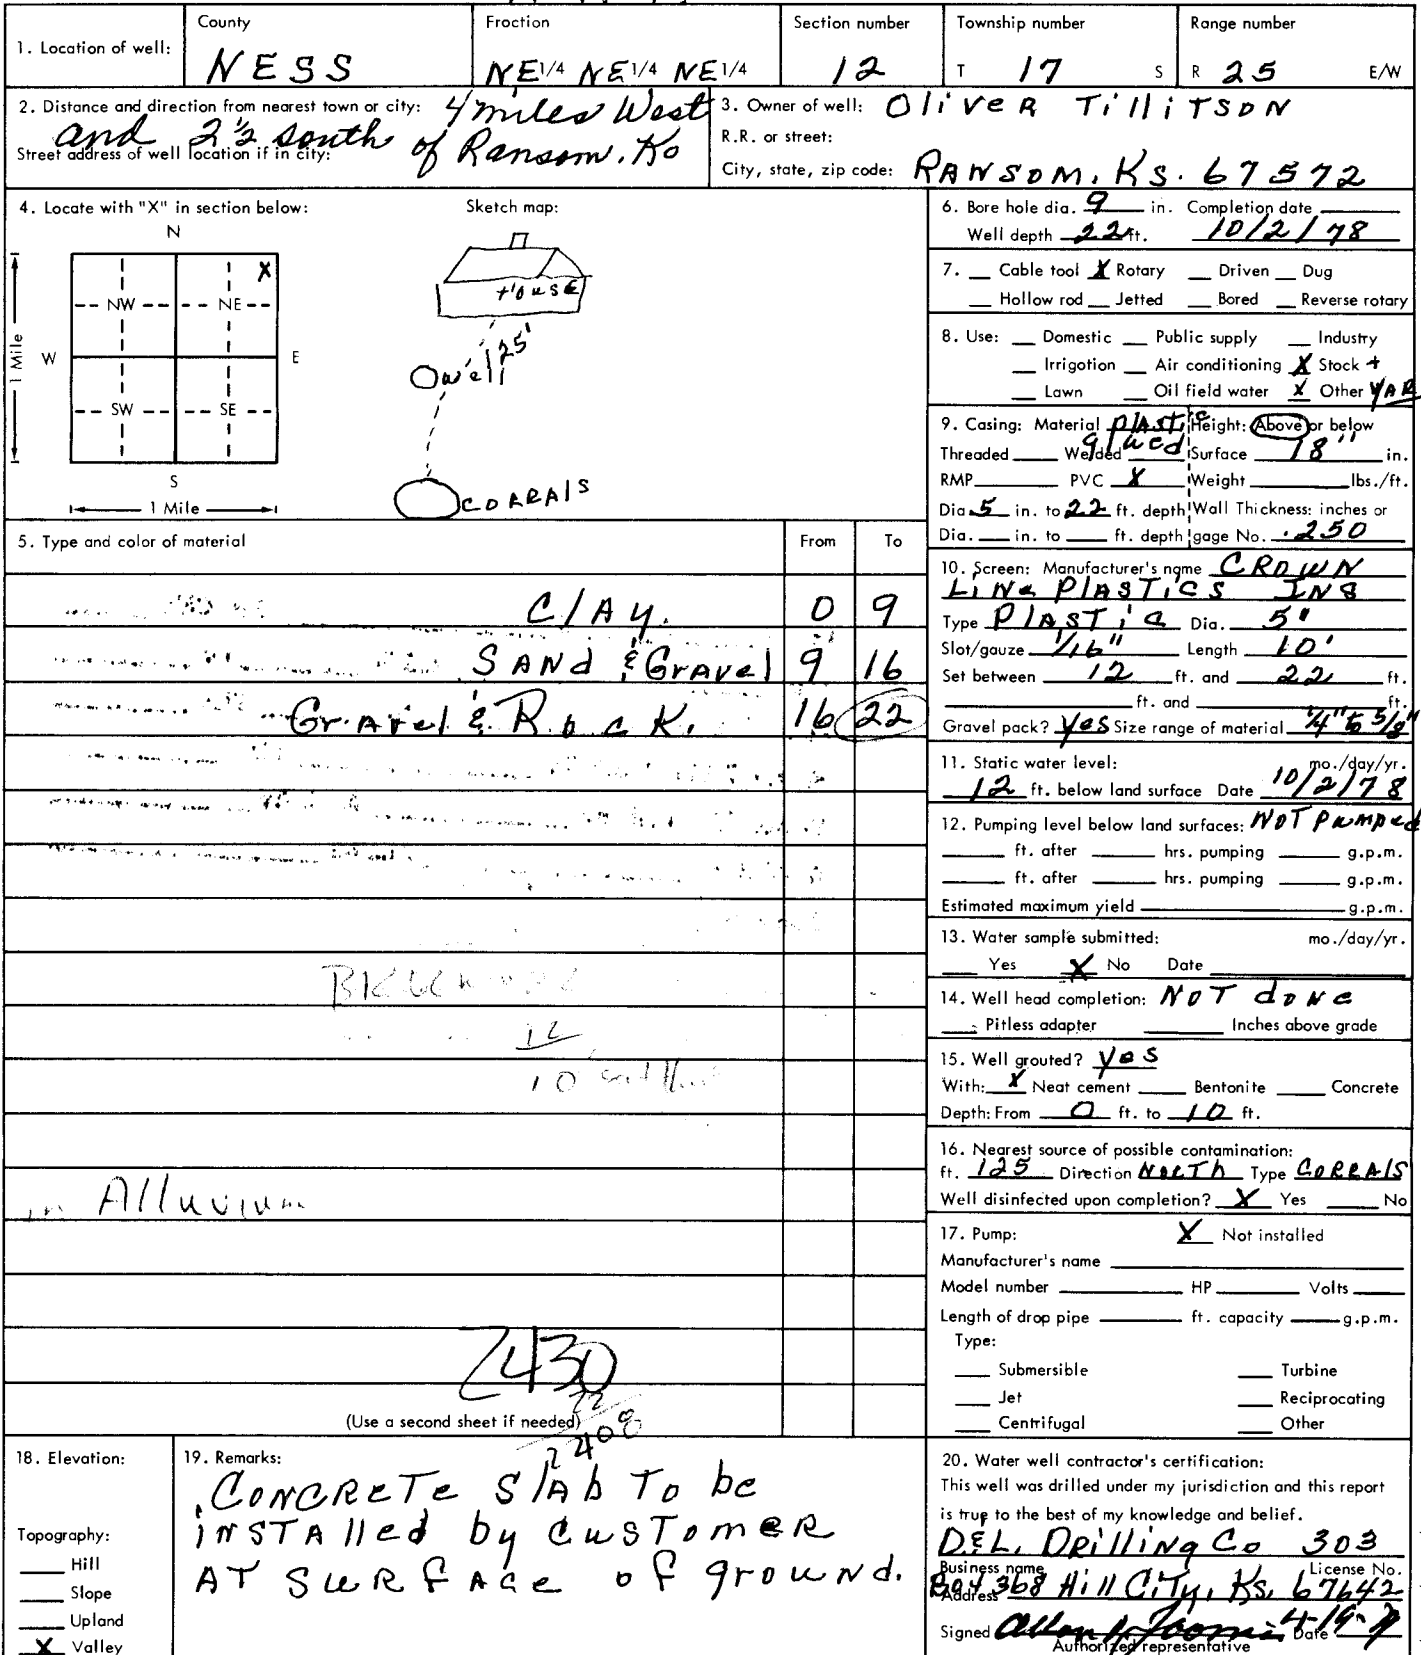 County Froction Section number Township number Range number
1. Location of well: NESS NE1/4 NE1/4 NE1/4 12 T 17 S R 25 E/W
2. Distance and direction from nearest town or city: 4 miles West
and 2½ south of Ransom, Ks
Street address of well location if in city:
3. Owner of well: OliVER TilliTSON
R.R. or street:
City, state, zip code: RANSOM, KS. 67572
4. Locate with "X" in section below:
N
X
NW NE
W E
SW SE
S
1 Mile
1 Mile
Sketch map:
House
125'
well
CORRAlS
5. Type and color of material From To
ClAy. 0 9
SANd & GrAvel 9 16
GrAvel & Rock. 16 22
12
10
in Alluvium
2430
22
2408
(Use a second sheet if needed)
6. Bore hole dia. 9 in. Completion date
Well depth 22 ft. 10/2/78
7. Cable tool X Rotary Driven Dug
Hollow rod Jetted Bored Reverse rotary
8. Use: Domestic Public supply Industry
Irrigation Air conditioning X Stock +
Lawn Oil field water X Other YARD
9. Casing: Material plAstic Height: Above or below
Threaded Welded glued Surface 18" in.
RMP PVC X Weight lbs./ft.
Dia. 5 in. to 22 ft. depth Wall Thickness: inches or
Dia. in. to ft. depth gage No. .250
10. Screen: Manufacturer's name CROWN
LiNe PlASTiCS INS
Type PlASTiC Dia. 5"
Slot/gauze 1/16" Length 10'
Set between 12 ft. and 22 ft.
ft. and ft.
Gravel pack? yes Size range of material 1/4" to 5/8"
11. Static water level: mo./day/yr.
12 ft. below land surface Date 10/2/78
12. Pumping level below land surfaces: NOT pumped
ft. after hrs. pumping g.p.m.
ft. after hrs. pumping g.p.m.
Estimated maximum yield g.p.m.
13. Water sample submitted: mo./day/yr.
Yes X No Date
14. Well head completion: NOT doNe
Pitless adapter Inches above grade
15. Well grouted? yes
With: X Neat cement Bentonite Concrete
Depth: From 0 ft. to 10 ft.
16. Nearest source of possible contamination:
ft. 125 Direction NoRTh Type CORRAlS
Well disinfected upon completion? X Yes No
17. Pump: X Not installed
Manufacturer's name
Model number HP Volts
Length of drop pipe ft. capacity g.p.m.
Type:
Submersible Turbine
Jet Reciprocating
Centrifugal Other
18. Elevation:
Topography:
Hill
Slope
Upland
X Valley
19. Remarks:
CONCReTe SlAb To be
iNSTAlled by CuSTOMeR
AT SuRfAce of ground.
20. Water well contractor's certification:
This well was drilled under my jurisdiction and this report
is true to the best of my knowledge and belief.
D&L. DRilliNg Co 303
Business name License No.
Box 368 Hill CiTy, Ks. 67642
Address
Signed Date
Authorized representative